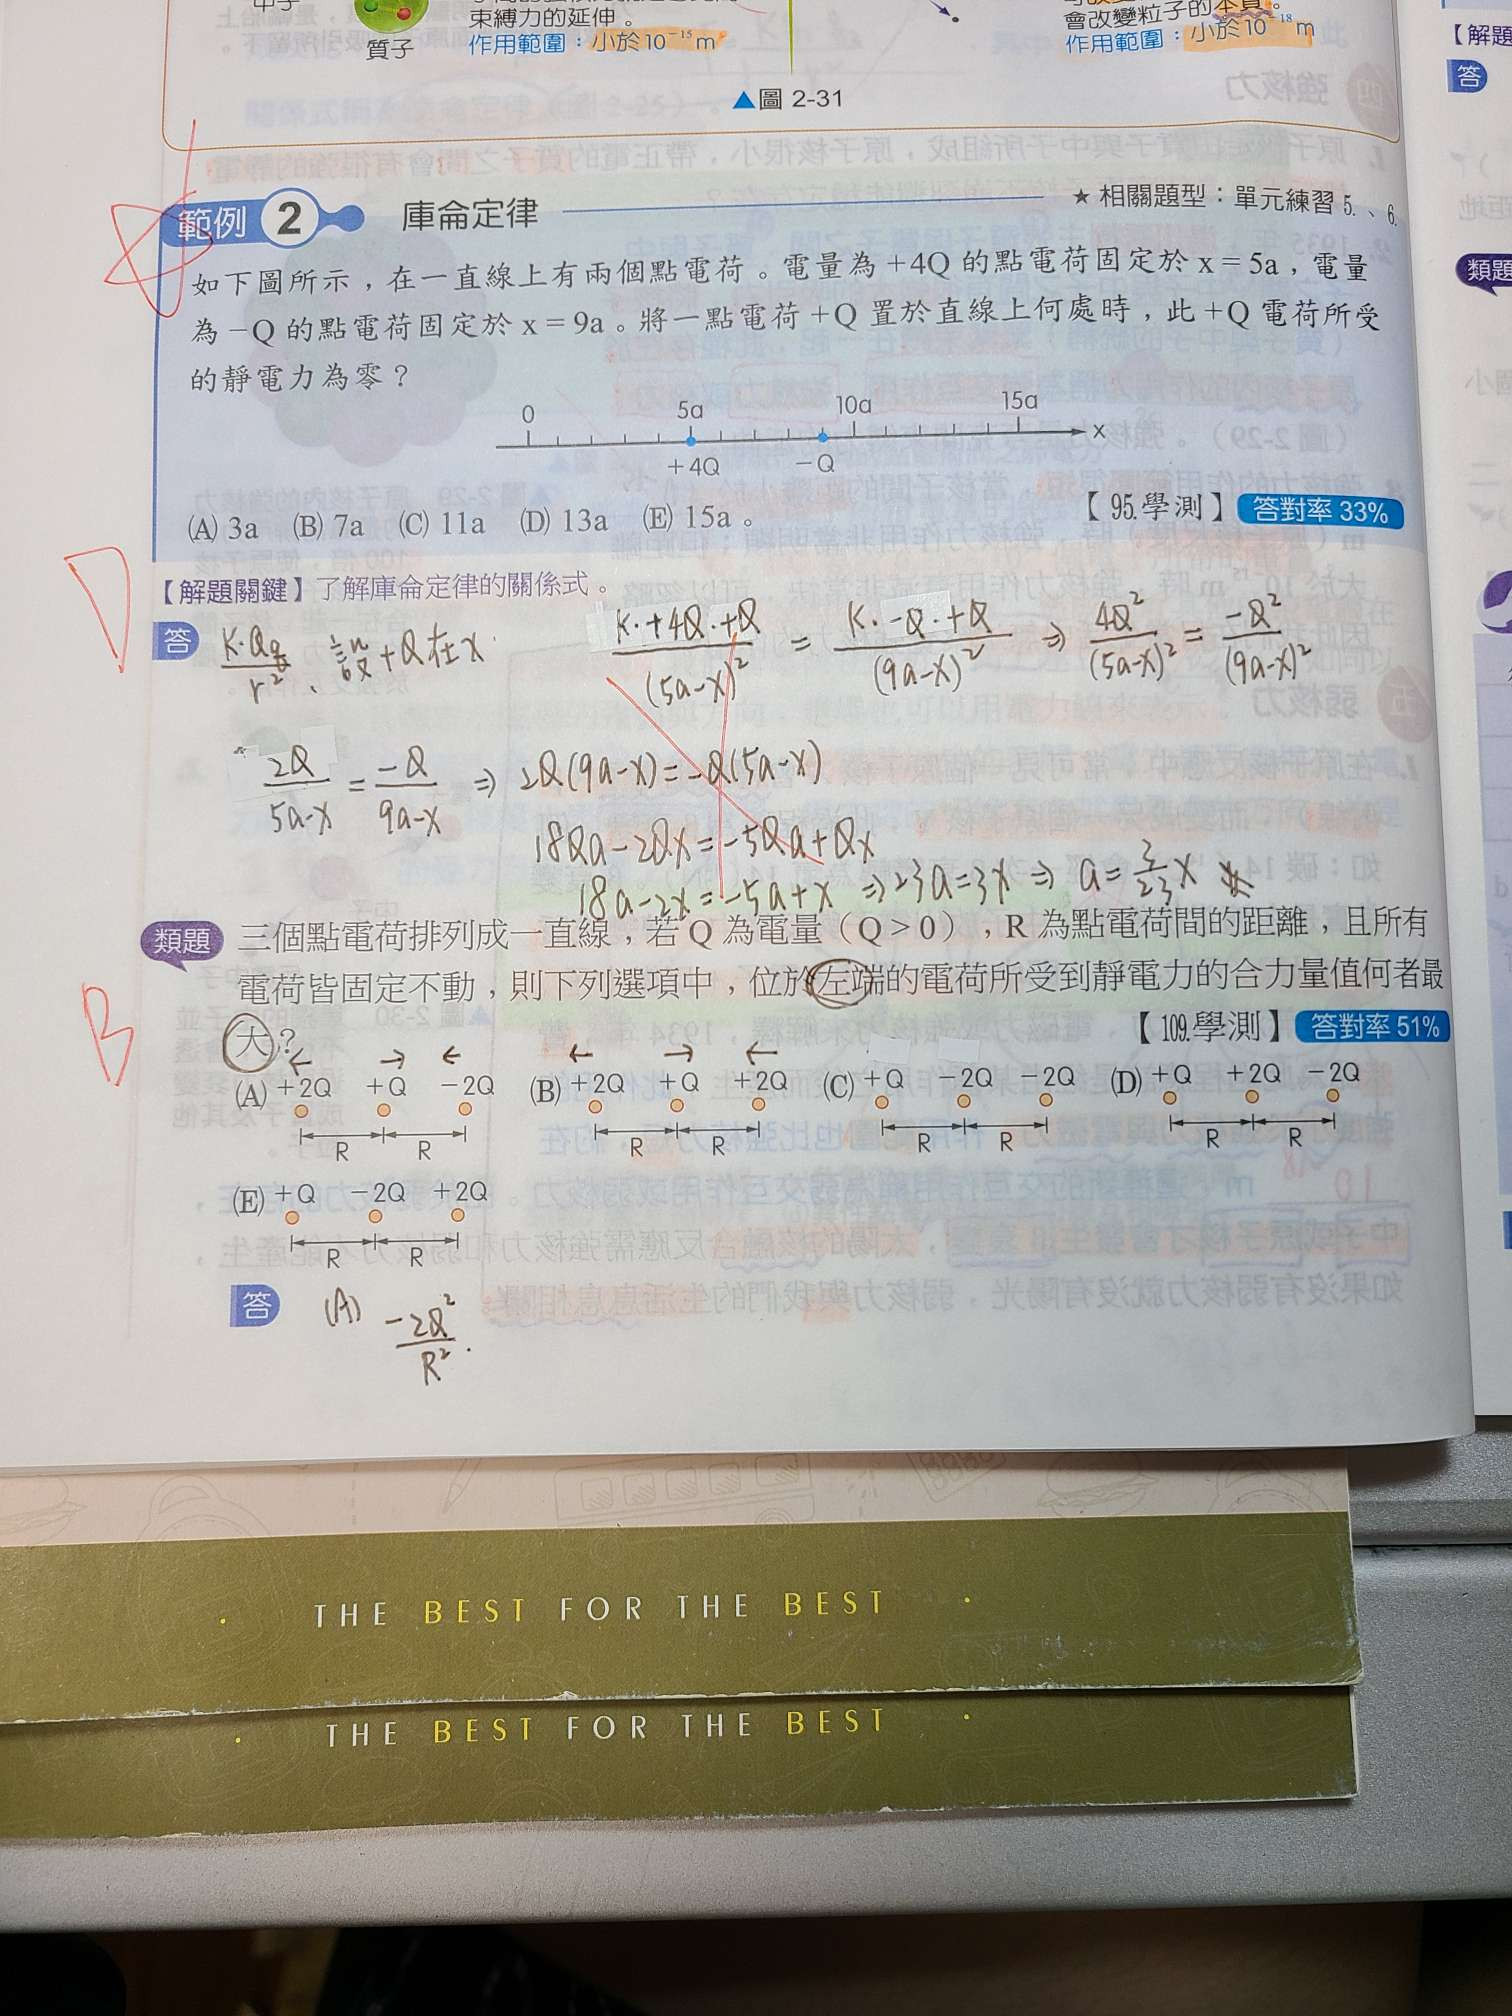 質子
束縛力的延伸。
作用範圍：小於10⁻¹⁵ m
會改變粒子的本質。
作用範圍：小於10⁻¹⁸ m
▲圖 2-31
範例 2 庫侖定律
★ 相關題型：單元練習 5.、6.
如下圖所示，在一直線上有兩個點電荷。電量為 +4Q 的點電荷固定於 x = 5a，電量
為 −Q 的點電荷固定於 x = 9a。將一點電荷 +Q 置於直線上何處時，此 +Q 電荷所受
的靜電力為零？
0 5a 10a 15a x
+4Q −Q
(A) 3a (B) 7a (C) 11a (D) 13a (E) 15a。
【95.學測】 答對率 33%
D
【解題關鍵】了解庫侖定律的關係式。
答 K·Qq/r²、設 +Q 在 x. K·+4Q·+Q/(5a-x)² = K·-Q·+Q/(9a-x)² ⇒ 4Q²/(5a-x)² = -Q²/(9a-x)²
2Q/5a-x = -Q/9a-x ⇒ 2Q(9a-x) = -Q(5a-x)
18Qa-2Qx = -5Qa+Qx
18a-2x = -5a+x ⇒ 23a=3x ⇒ a = 3/23 x
類題 三個點電荷排列成一直線，若 Q 為電量（Q > 0），R 為點電荷間的距離，且所有
電荷皆固定不動，則下列選項中，位於左端的電荷所受到靜電力的合力量值何者最
大？
【109.學測】 答對率 51%
B
← → ← ← → ←
(A) +2Q +Q −2Q (B) +2Q +Q +2Q (C) +Q −2Q −2Q (D) +Q +2Q −2Q
R R R R R R R R
(E) +Q −2Q +2Q
R R
答 (A) -2Q²/R².
【解題
答
類題
THE BEST FOR THE BEST
THE BEST FOR THE BEST